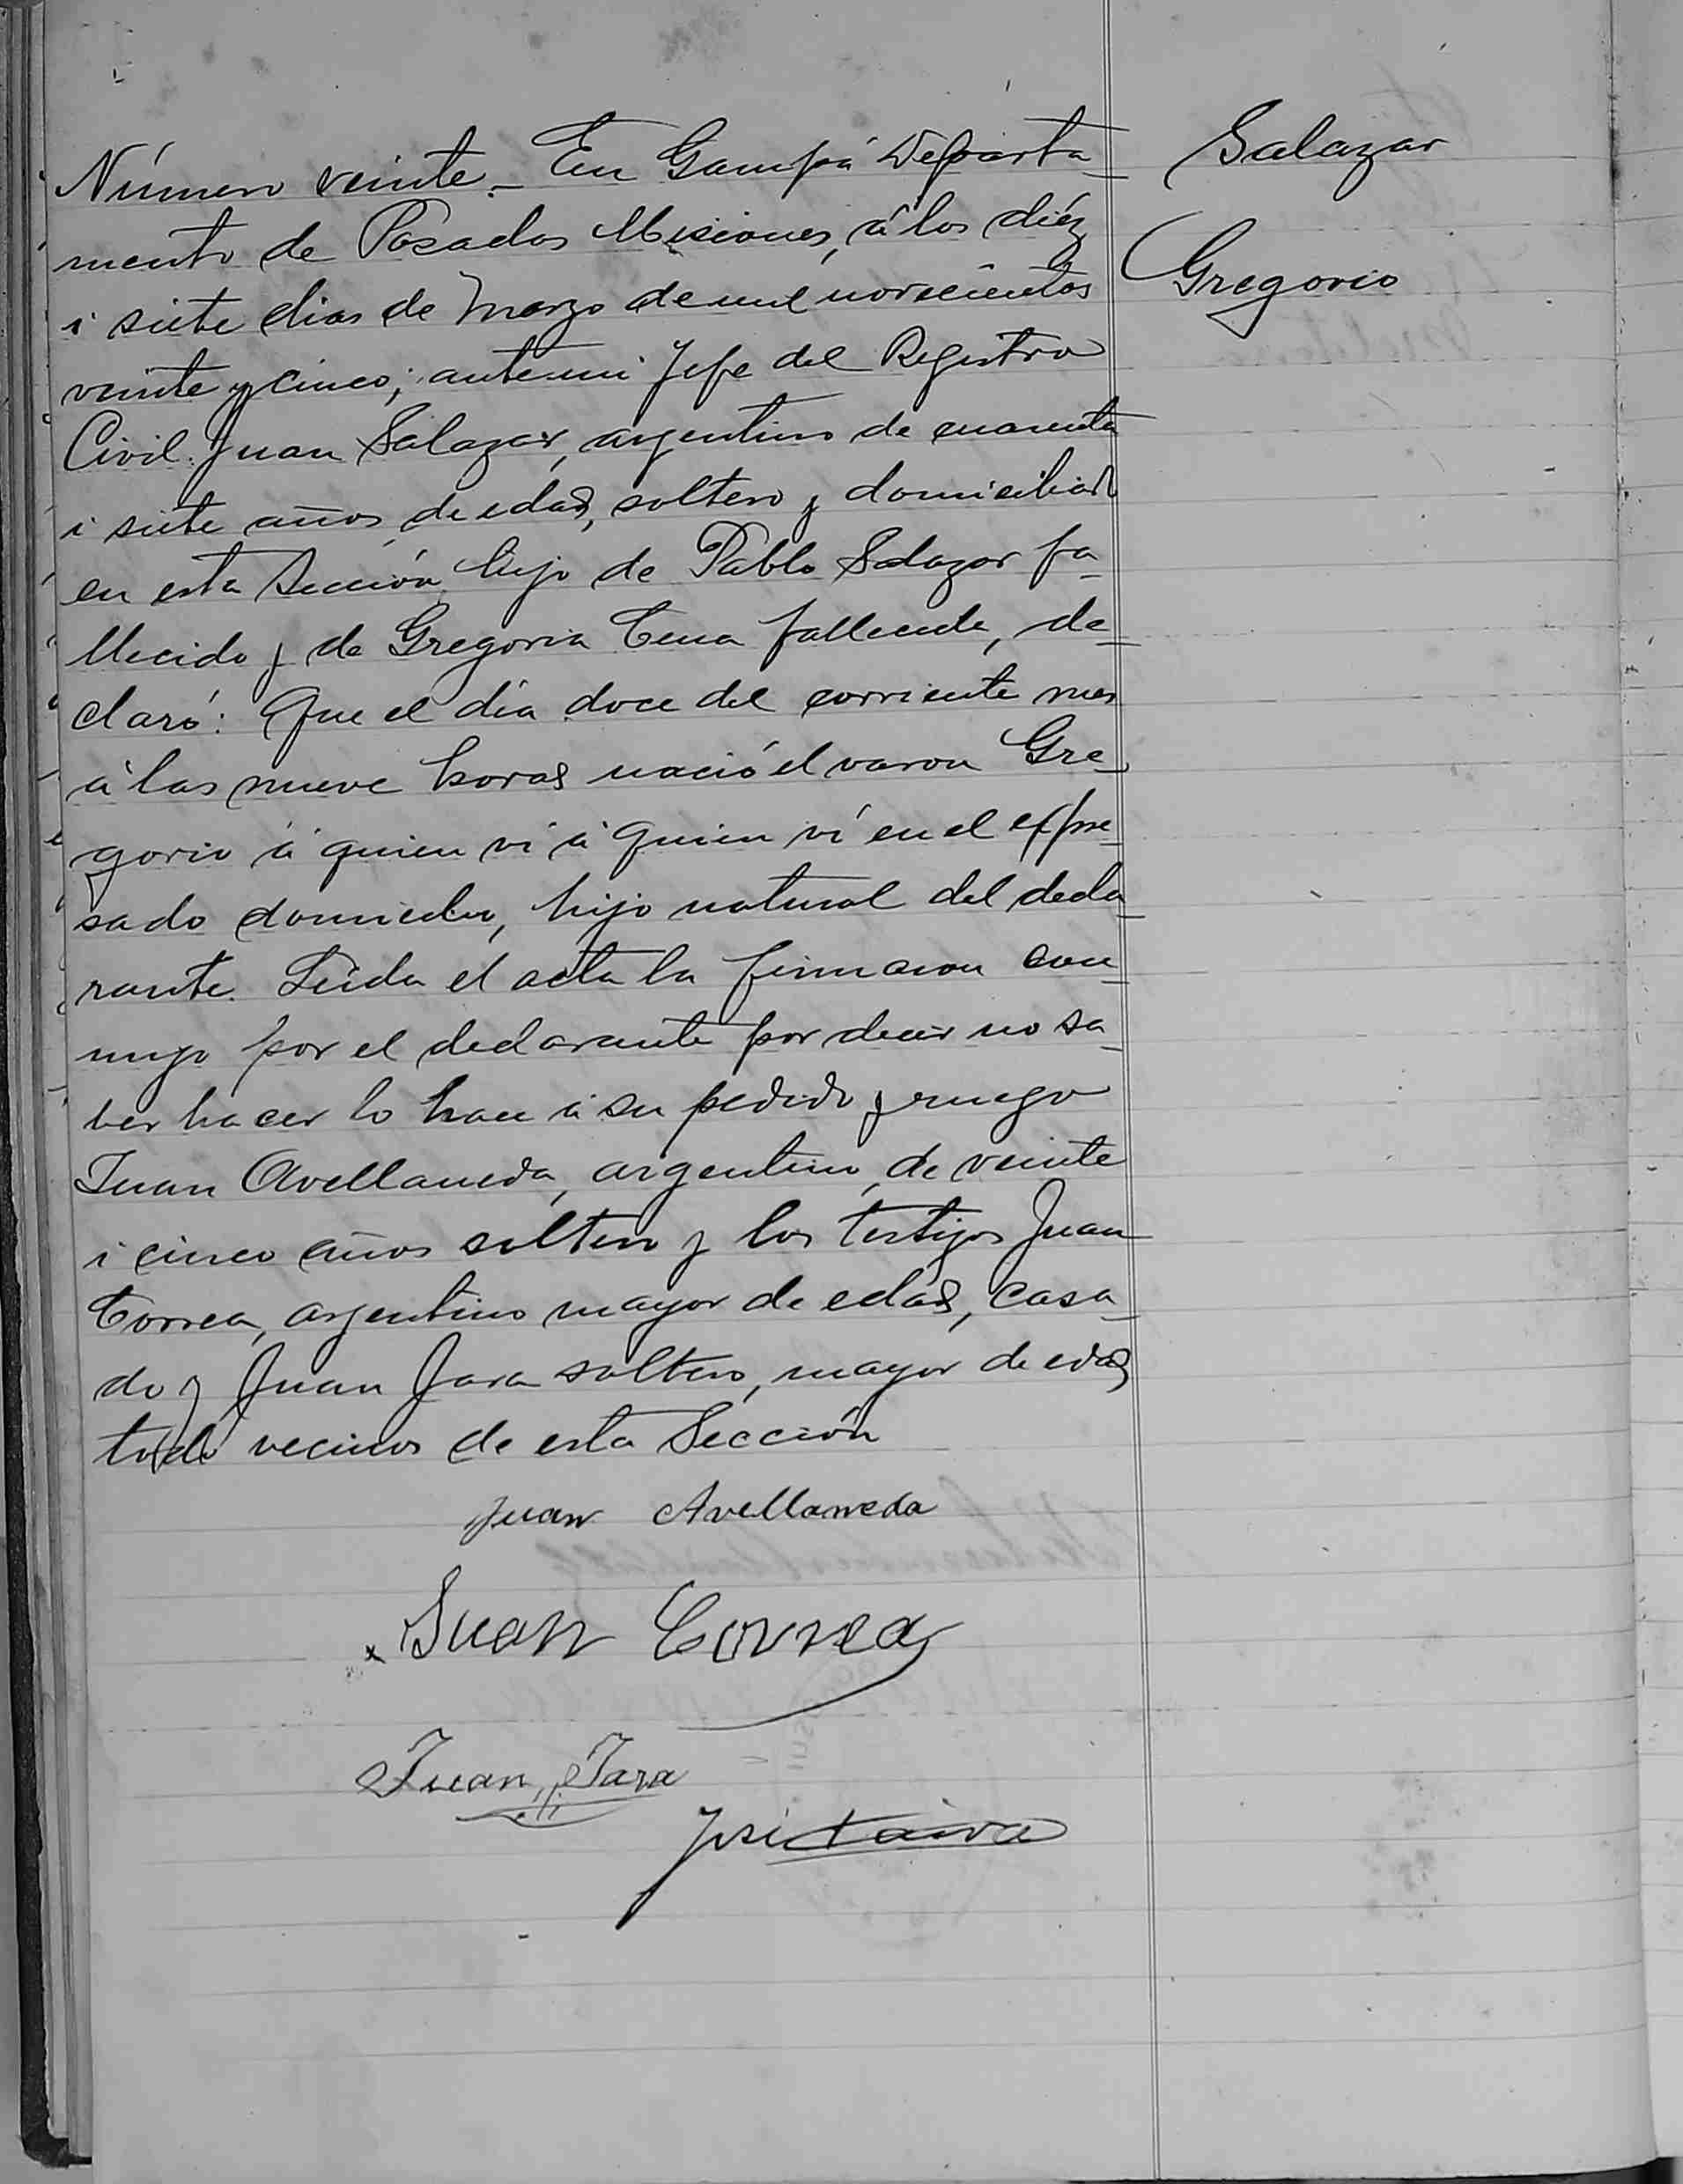 Número veinte.- En Garupá Departa-
mento de Posadas Misiones, á los diéz
i siete dias de Marzo de mil novecientos
veinte y cinco; ante mi Jefe del Registro
Civil. Juan Salazar, argentino de cuarenta
i siete años de edad, soltero y domiciliado
en esta Sección, hijo de Pablo Salazar fa-
llecido y de Gregoria Cena fallecida, de-
claró: Que el día doce del corriente mes
á las nueve horas nació el varon Gre-
gorio á quien ví á quien ví en el expre-
sado domicilio, hijo natural del decla-
rante. Leida el acta la firmaron con-
migo por el declarante por decir no sa-
ber hacer lo hace á su pedido y ruego
Juan Avellaneda, argentino, de veinte
i cinco años soltero y los testigos Juan
Correa, argentino mayor de edad, casa-
do y Juan Jara soltero, mayor de edad
todo vecinos de esta Sección
Juan Avellaneda
Juan Correa
Juan Jara
José
Salazar
Gregorio